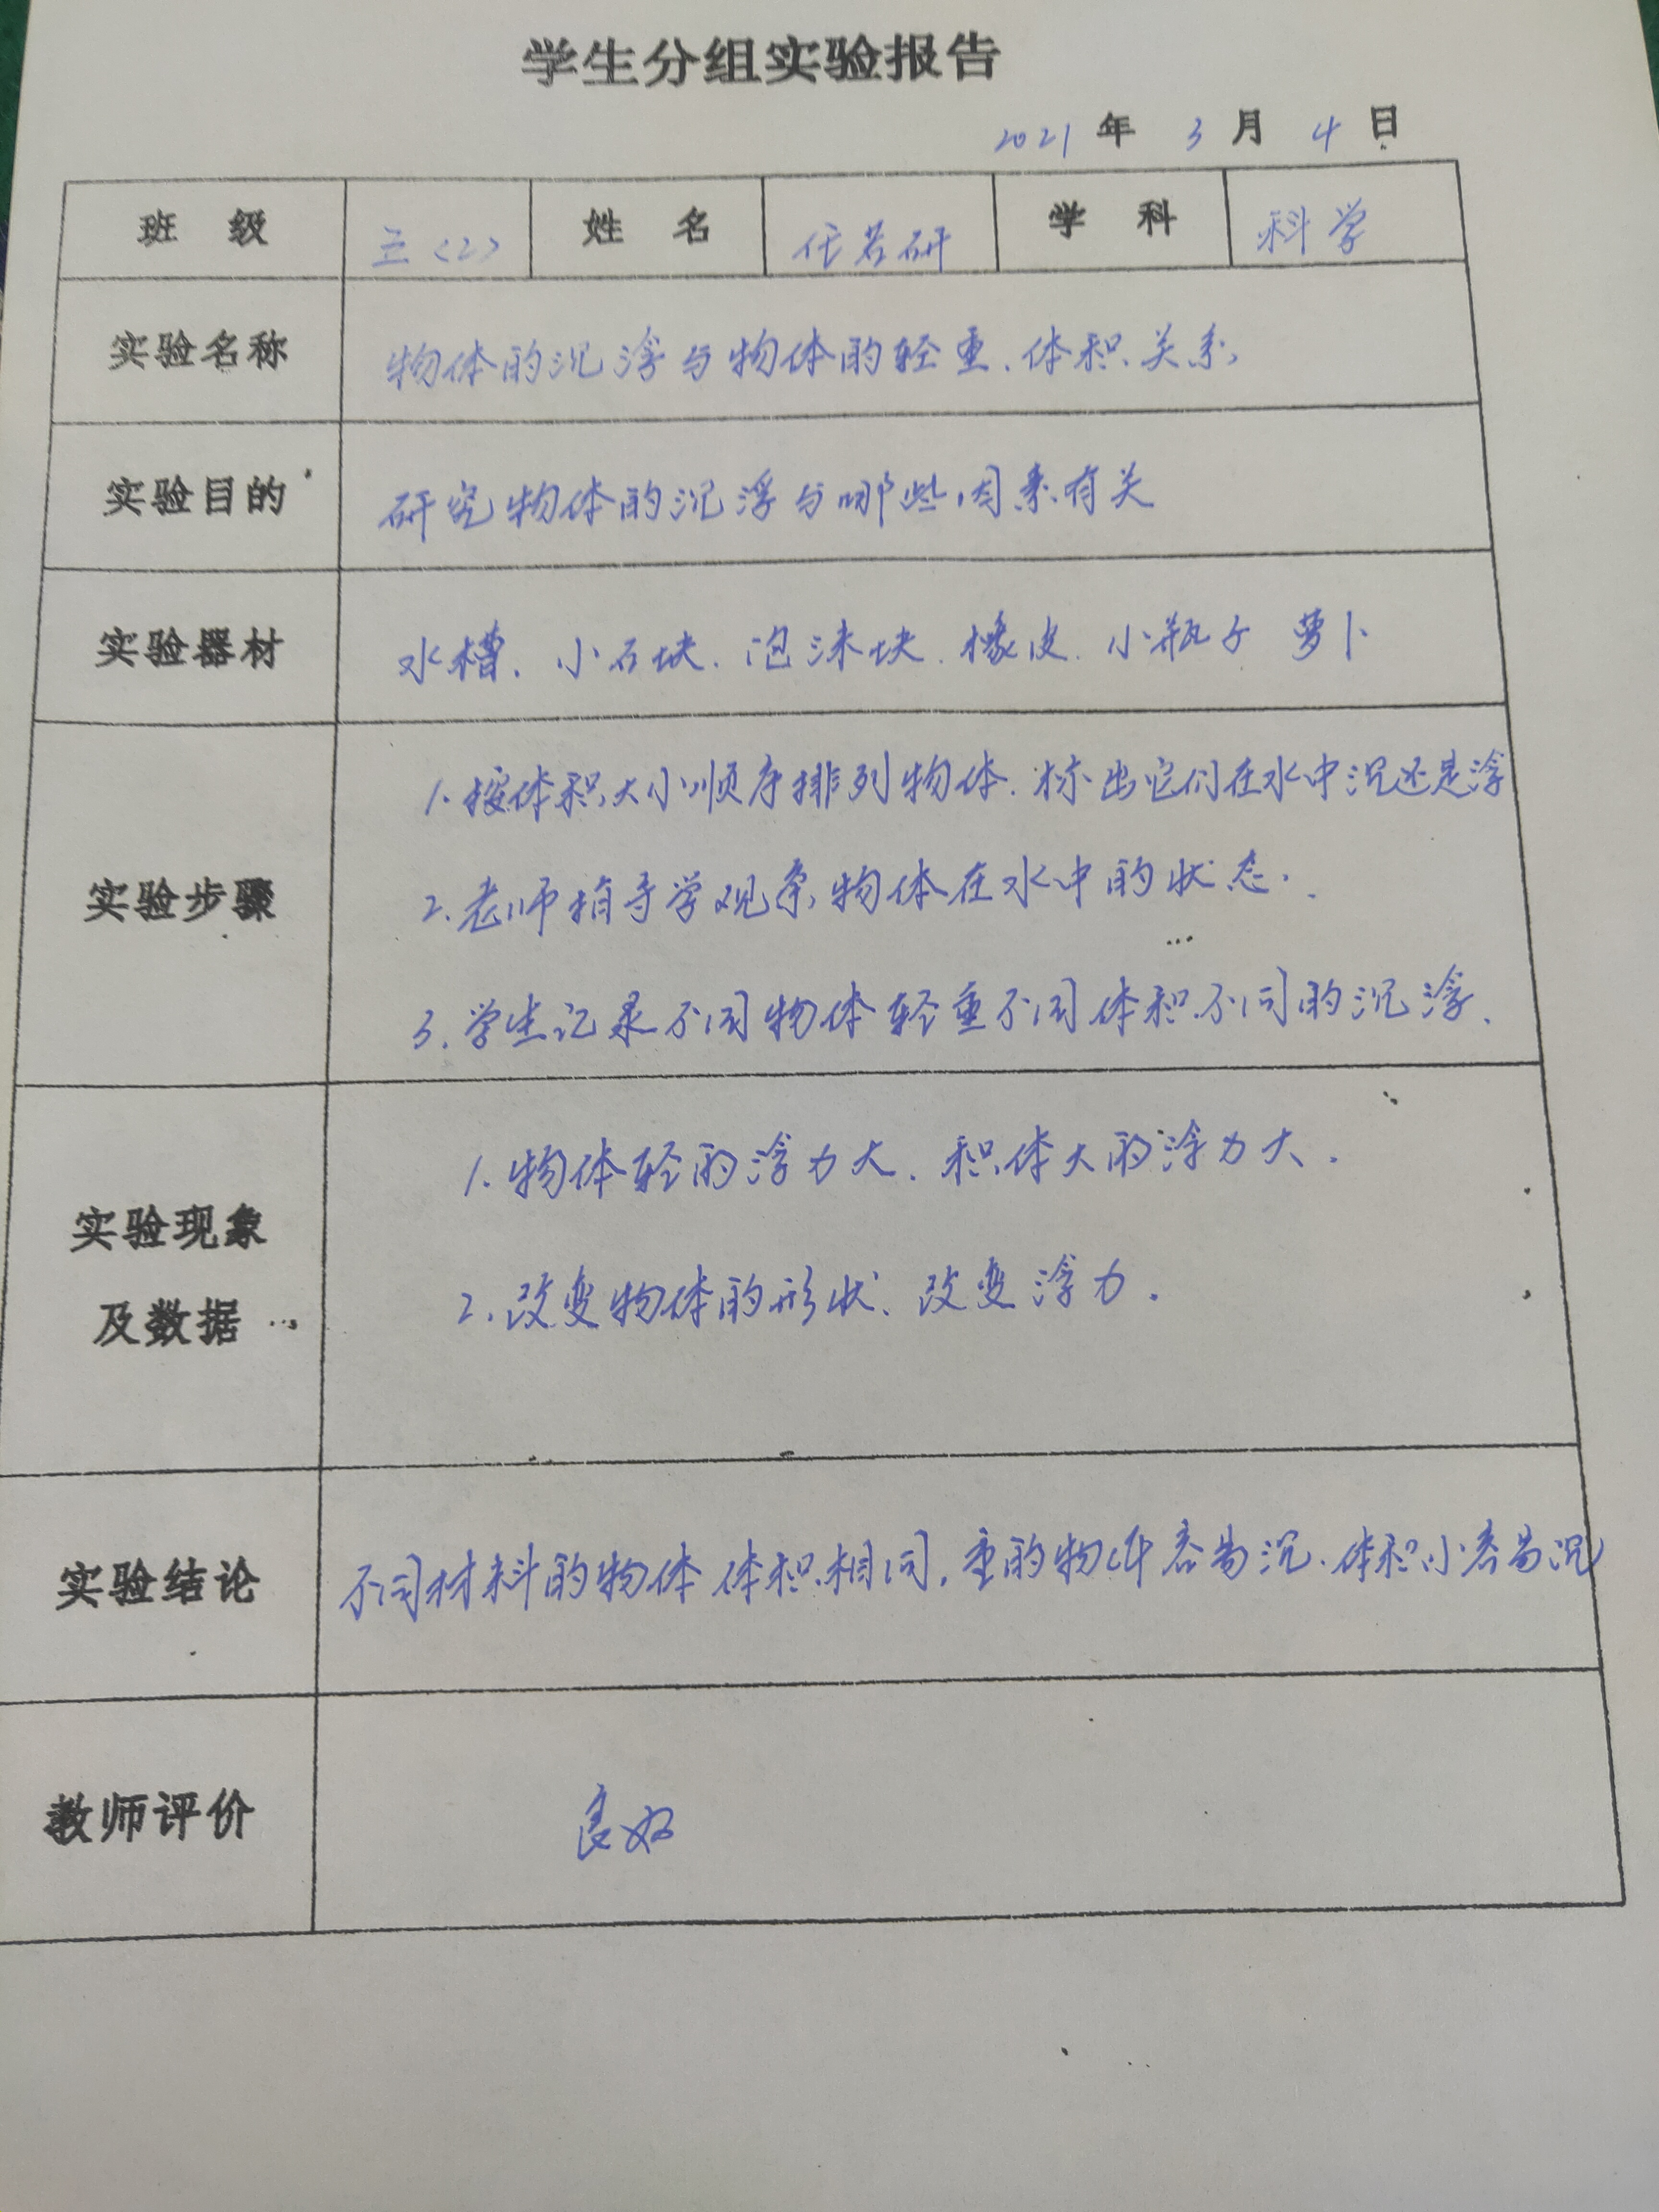 学生分组实验报告
2021 年 3 月 4 日
班 级 三(2) 姓 名 任若研 学 科 科学
实验名称 物体的沉浮与物体的轻重、体积关系
实验目的 研究物体的沉浮与哪些因素有关
实验器材 水槽、小石块、泡沫块、橡皮、小瓶子 萝卜
1.按体积大小顺序排列物体、标出它们在水中沉还是浮
实验步骤 2.老师指导学观察物体在水中的状态.
3.学生记录不同物体轻重不同体积不同的沉浮、
1.物体轻的浮力大、积体大的浮力大.
实验现象
2.改变物体的形状、改变浮力.
及数据
实验结论 不同材料的物体 体积相同,重的物体容易沉、体积小容易沉
教师评价 良好